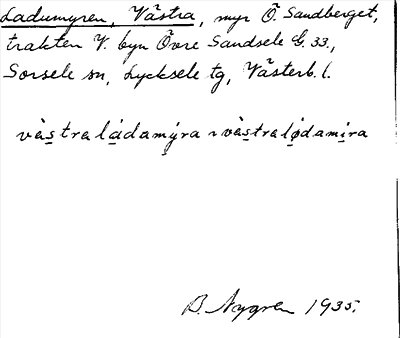 Ladumyren, Västra, myr Ö. Sandberget,
trakten V. byn Övre Sandsele G. 33.,
Sorsele sn, Lycksele tg, Västerb. l.
và̀s̲tralá̲damý̲ra ~ và̀s̲tralǿ̲damí̲ra
B. Nygren 1935.